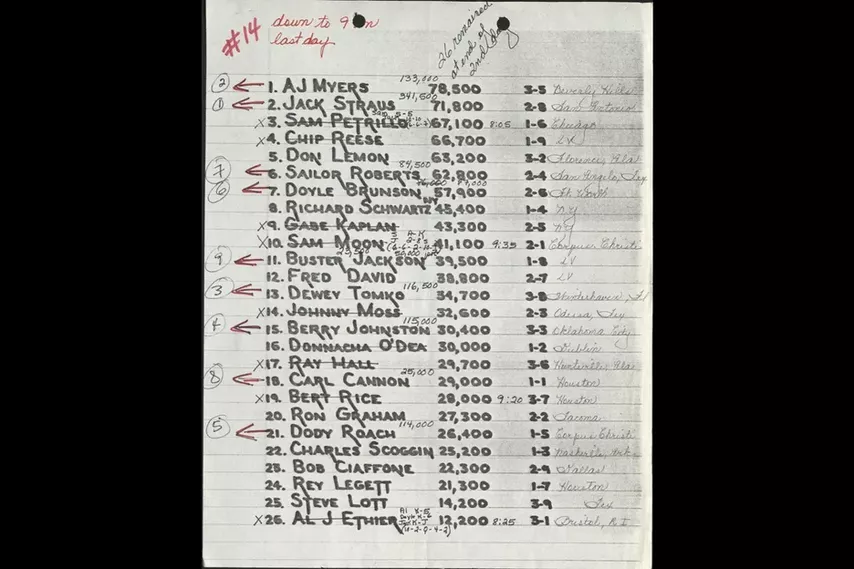 #14 down to 9 on
last day
26 remained
at end of
2nd day
133,000
② ← 1. AJ MYERS 78,500 3-5 Beverly Hills
341,500
① ← 2. JACK STRAUS 71,800 2-8 San Antonio
x3. SAM PETRILLO 67,100 8:05 1-6 Chicago
x4. CHIP REESE 66,700 1-9 LV
5. DON LEMON 63,200 3-2 Florence, Ala
84,500
⑦ ← 6. SAILOR ROBERTS 62,800 2-4 San Angelo, Tex
⑥ ← 7. DOYLE BRUNSON 57,900 2-6 Ft. Worth
8. RICHARD SCHWARTZ NY 45,400 1-4 NY
x9. GABE KAPLAN 43,300 2-5 NY
x10. SAM MOON 41,100 9:35 2-1 Corpus Christi
⑨ ← 11. BUSTER JACKSON 39,500 1-8 LV
12. FRED DAVID 38,800 2-7 LV
116,500
③ ← 13. DEWEY TOMKO 34,700 3-8 Winterhaven, Fl
x14. JOHNNY MOSS 32,600 2-3 Odessa, Tex
115,000
④ ← 15. BERRY JOHNSTON 30,400 3-3 Oklahoma City
16. DONNACHA O'DEA 30,000 1-2 Dublin
x17. RAY HALL 29,700 3-6 Huntsville, Ala
25,000
⑧ ← 18. CARL CANNON 29,000 1-1 Houston
x19. BERT RICE 28,000 9:20 3-7 Houston
20. RON GRAHAM 27,300 2-2 Tacoma
114,000
⑤ ← 21. DODY ROACH 26,400 1-5 Corpus Christi
22. CHARLES SCOGGIN 25,200 1-3 Nashville, Ark
23. BOB CIAFFONE 22,300 2-9 Dallas
24. REY LEGETT 21,300 1-7 Houston
25. STEVE LOTT 14,200 3-9 Tex
x26. AL J ETHIER 12,200 8:25 3-1 Bristol, R.I